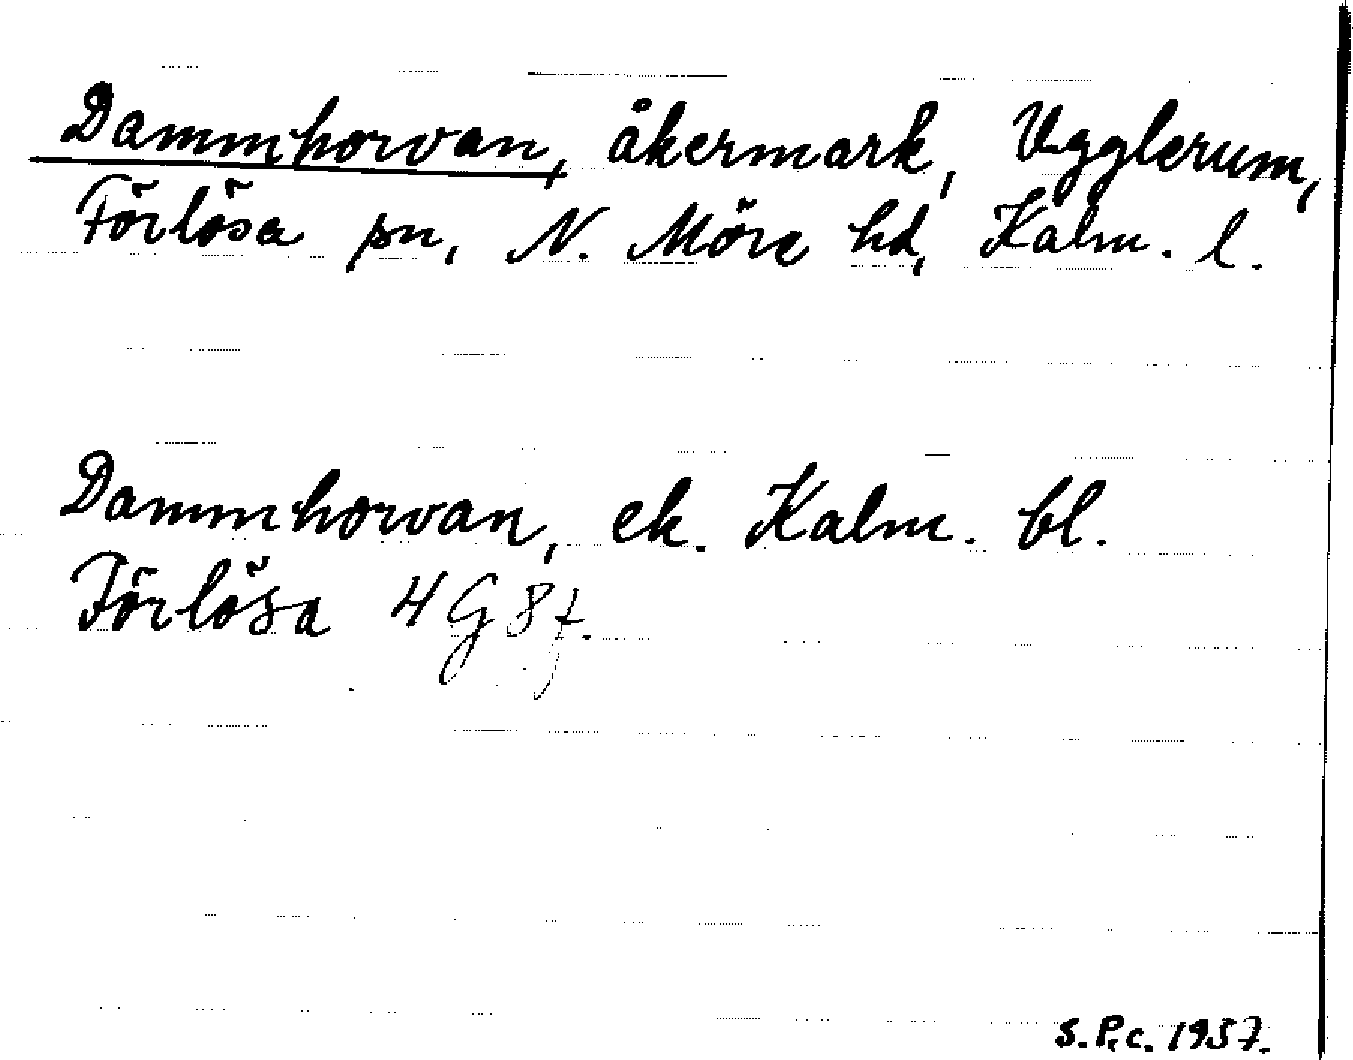 Dammhorvan, åkermark, Ugglerum,
Förlösa sn, N. Möre hd, Kalm. l.
Dammhorvan, ek. Kalm. bl.
Förlösa 4 G 8 f.
S.P.c. 1957.